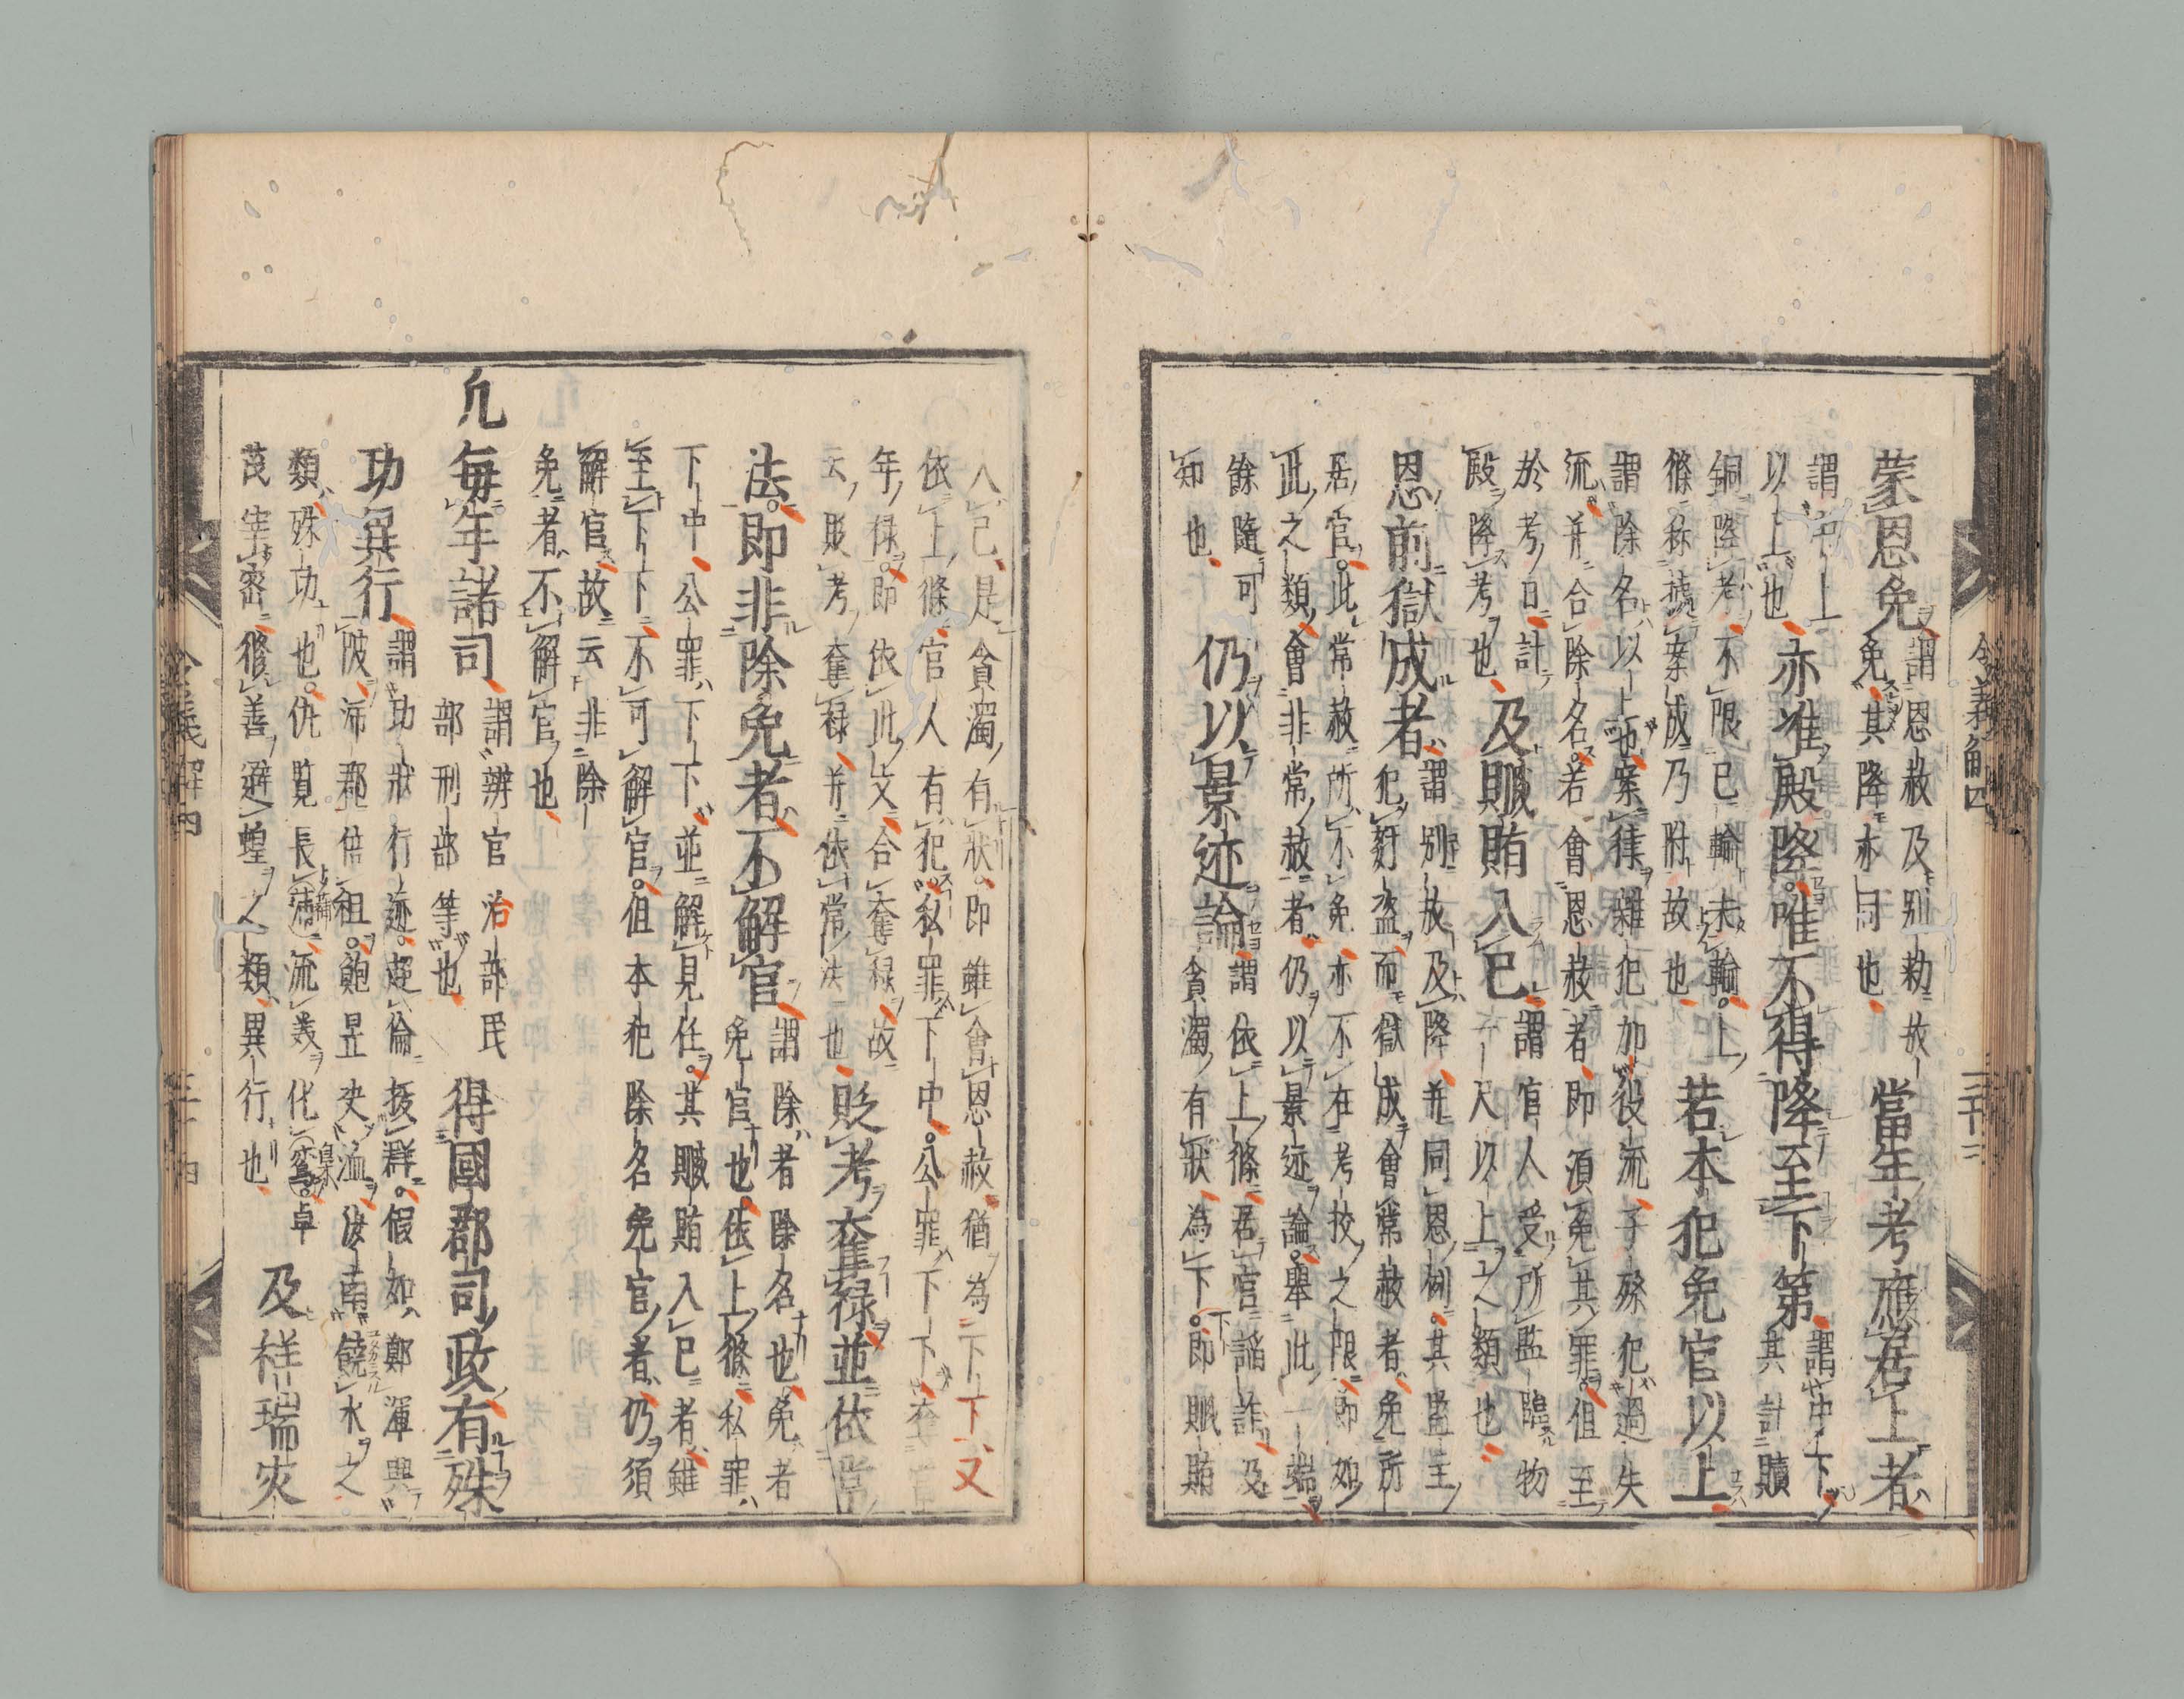 蒙恩免
謂恩赦及別勅放
免其降亦同也
當年考應居上者
謂中上
以上也
亦准殿降唯不得降至下第
謂中下
其計贖
銅降考不限已輸未輸上
條称據案成乃附故也
若本犯免官以上
謂除名以上也案律雜犯加役流子孫犯過失
流并合除名若會恩赦者即須免其罪但至
於考日計
殿降考也
及贓賄入已
謂官人受所監臨物
一尺以上之類也
恩前獄成者
謂別放及降并同恩例其監主
犯姧盗而獄成會常赦者免所
居官此常赦所不免亦不在考挍之限即如
此之類會非常赦者仍以景迹論舉此一端
餘隨可
知也
仍以景迹論
謂依上條居官諂詐及
貪濁有狀為下下即贓賄
令義解四
三十三
入已是貪濁有狀即雖會恩赦猶為下下又
依上條官人有犯私罪下中公罪下下奪當
年禄即依此文合奪禄故
云貶考奪禄并依常法也
貶考奪禄並依常
法即非除免者不解官
謂除者除名也免者
免官也依上條私罪
下中公罪下下並解見任其贓賄入已者雖
至下下不可解官但本犯除名免官者仍須
解官故云非除
免者不解官也
凢每年諸司
謂辨官治部民
部刑部等也
得國郡司政有殊
功異行
謂功狀行迹超倫拔群假如鄭渾興
陂沛郡倍租鮑昱夬洫汝南饒水之
類殊功也仇覧長蒲流義化鴞卓
茂宰密修善避蝗之類異行也
及祥瑞灾
令義解四